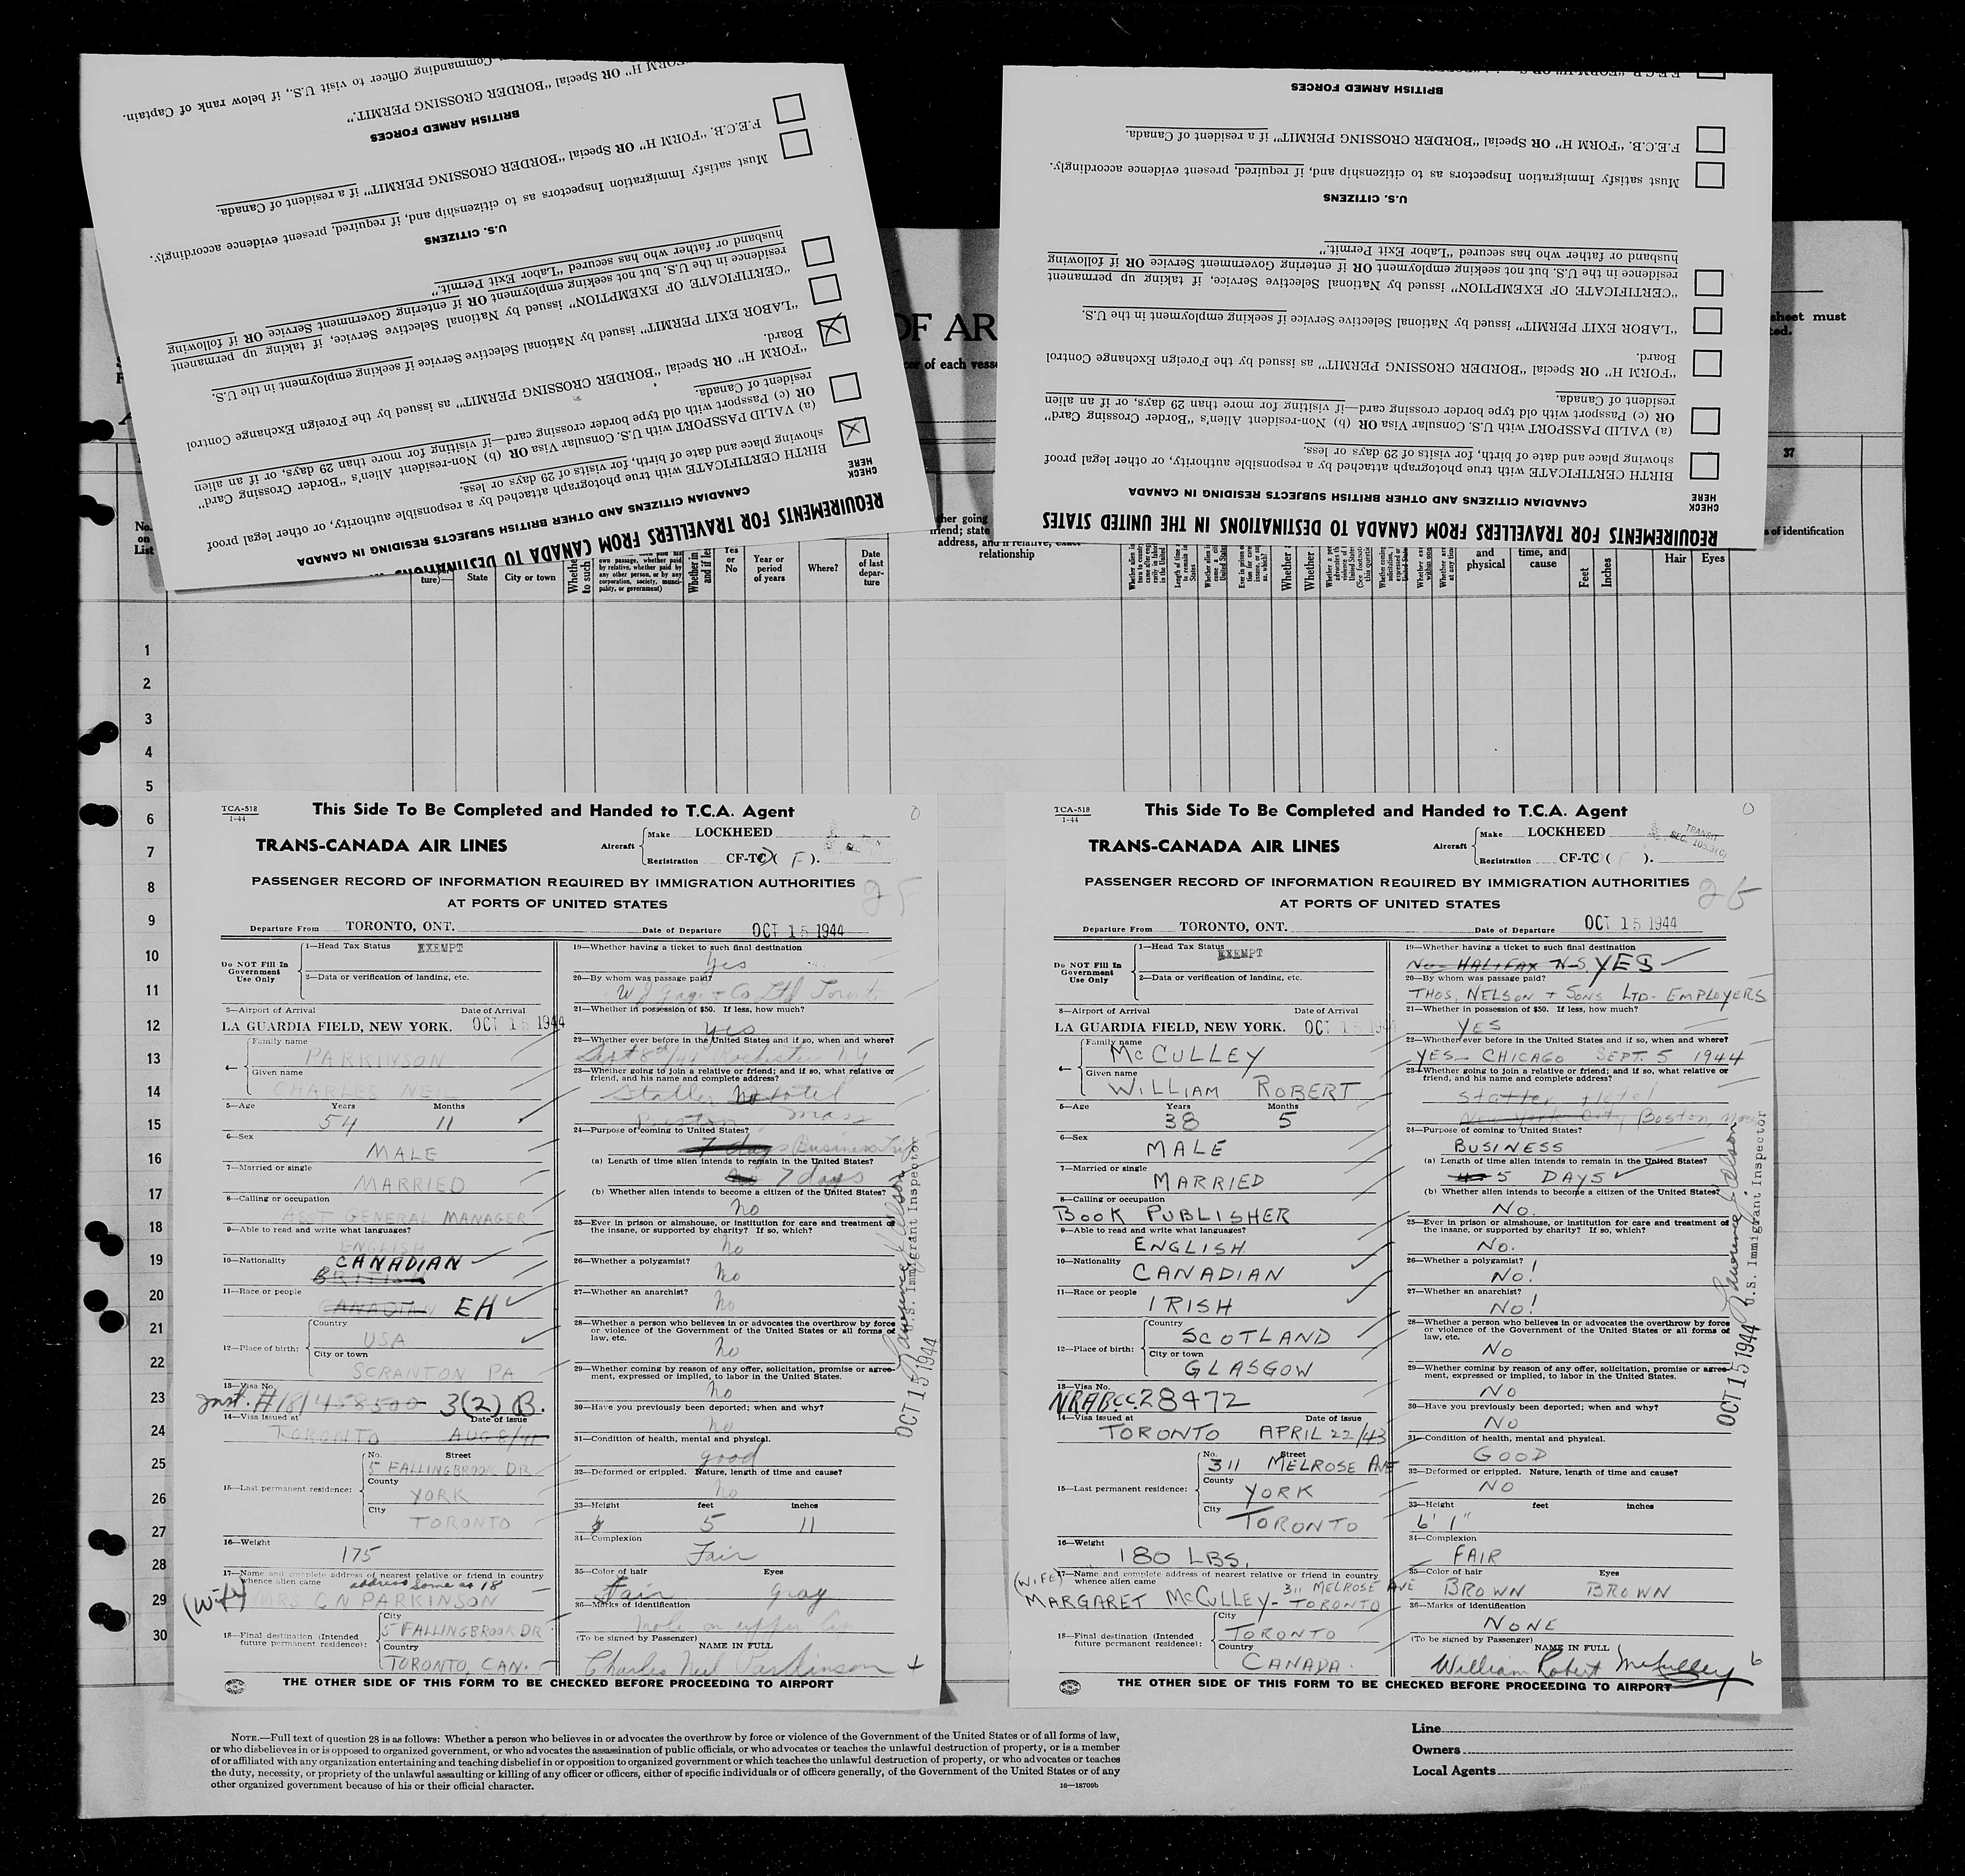 REQUIREMENTS FOR TRAVELLERS FROM CANADA TO DESTINATIONS IN
CANADIAN CITIZENS AND OTHER BRITISH SUBJECTS RESIDING IN CANADA
CHECK
HERE
BIRTH CERTIFICATE with true photograph attached by a responsible authority, or other legal proof
showing place and date of birth, for visits of 29 days or less.
(a) VALID PASSPORT with U.S. Consular Visa OR (b) Non-resident Alien's "Border Crossing Card"
OR (c) Passport with old type border crossing card—if visiting for more than 29 days, or if an alien
resident of Canada.
"FORM H" OR Special "BORDER CROSSING PERMIT" as issued by the Foreign Exchange Control
Board.
"LABOR EXIT PERMIT" issued by National Selective Service if seeking employment in the U.S.
"CERTIFICATE OF EXEMPTION" issued by National Selective Service, if taking up permanent
residence in the U.S. but not seeking employment OR if entering Government Service OR if following
husband or father who has secured "Labor Exit Permit."
U.S. CITIZENS
Must satisfy Immigration Inspectors as to citizenship and, if required, present evidence accordingly.
F.E.C.B. "FORM H" OR Special "BORDER CROSSING PERMIT" if a resident of Canada.
BRITISH ARMED FORCES
"FORM H" OR Special "BORDER CROSSING PERMIT."
Commanding Officer to visit U.S., if below rank of Captain.
REQUIREMENTS FOR TRAVELLERS FROM CANADA TO DESTINATIONS IN THE UNITED STATES
CANADIAN CITIZENS AND OTHER BRITISH SUBJECTS RESIDING IN CANADA
CHECK
HERE
BIRTH CERTIFICATE with true photograph attached by a responsible authority, or other legal proof
showing place and date of birth, for visits of 29 days or less.
(a) VALID PASSPORT with U.S. Consular Visa OR (b) Non-resident Alien's "Border Crossing Card"
OR (c) Passport with old type border crossing card—if visiting for more than 29 days, or if an alien
resident of Canada.
"FORM H" OR Special "BORDER CROSSING PERMIT" as issued by the Foreign Exchange Control
Board.
"LABOR EXIT PERMIT" issued by National Selective Service if seeking employment in the U.S.
"CERTIFICATE OF EXEMPTION" issued by National Selective Service, if taking up permanent
residence in the U.S. but not seeking employment OR if entering Government Service OR if following
husband or father who has secured "Labor Exit Permit."
U.S. CITIZENS
Must satisfy Immigration Inspectors as to citizenship and, if required, present evidence accordingly.
F.E.C.B. "FORM H" OR Special "BORDER CROSSING PERMIT" if a resident of Canada.
BRITISH ARMED FORCES
OF AR
of each
sheet must
37
of identification
No.
on
List
ture)
State
City or town
Yes
or
No
Year or
period
of years
Where?
Date
of last
depar-
ture
relationship
and
physical
time, and
cause
Feet
Inches
Hair
Eyes
1
2
3
4
5
6
7
8
9
10
11
12
13
14
15
16
17
18
19
20
21
22
23
24
25
26
27
28
29
30
TCA-518
1-44
This Side To Be Completed and Handed to T.C.A. Agent
TRANS-CANADA AIR LINES
Aircraft
Make LOCKHEED
Registration CF-TC ( F ).
PASSENGER RECORD OF INFORMATION REQUIRED BY IMMIGRATION AUTHORITIES
AT PORTS OF UNITED STATES
Departure From TORONTO, ONT. Date of Departure OCT 15 1944
Do NOT Fill In
Government
Use Only
1—Head Tax Status EXEMPT
2—Data or verification of landing, etc.
3—Airport of Arrival Date of Arrival
LA GUARDIA FIELD, NEW YORK. OCT 15 1944
4— Family name
PARKINSON
Given name
CHARLES NEIL
5—Age Years Months
54 11
6—Sex
MALE
7—Married or single
MARRIED
8—Calling or occupation
ASST GENERAL MANAGER
9—Able to read and write what languages?
ENGLISH
10—Nationality CANADIAN
BRITISH
11—Race or people
CANADIAN EH
12—Place of birth: Country
USA
City or town
SCRANTON PA
13—Visa No.
3(2) B.
14—Visa issued at Date of issue
TORONTO AUG 8/41
15—Last permanent residence:
No. Street
5 FALLINGBROOK DR
County
YORK
City
TORONTO
16—Weight
175
17—Name and complete address of nearest relative or friend in country
whence alien came address same as 18
(Wife) MRS C N PARKINSON
18—Final destination (Intended
future permanent residence):
City
5 FALLINGBROOK DR
Country
TORONTO, CAN.
19—Whether having a ticket to such final destination
Yes
20—By whom was passage paid?
W J Gage & Co Ltd Toronto
21—Whether in possession of $50. If less, how much?
yes
22—Whether ever before in the United States and if so, when and where?
Sept 8th/44 Rochester NY
23—Whether going to join a relative or friend; and if so, what relative or
friend, and his name and complete address?
Statler Hotel
Boston Mass
24—Purpose of coming to United States?
7 days Business Trip
(a) Length of time alien intends to remain in the United States?
No 7 days
(b) Whether alien intends to become a citizen of the United States?
No
25—Ever in prison or almshouse, or institution for care and treatment of
the insane, or supported by charity? If so, which?
No
26—Whether a polygamist?
No
27—Whether an anarchist?
No
28—Whether a person who believes in or advocates the overthrow by force
or violence of the Government of the United States or all forms of
law, etc.
No
29—Whether coming by reason of any offer, solicitation, promise or agree-
ment, expressed or implied, to labor in the United States.
No
30—Have you previously been deported; when and why?
No
31—Condition of health, mental and physical.
good
32—Deformed or crippled. Nature, length of time and cause?
No
33—Height feet inches
5 11
34—Complexion
Fair
35—Color of hair Eyes
Fair gray
36—Marks of identification
Mole on upper lip
(To be signed by Passenger) NAME IN FULL
Charles Neil Parkinson
U.S. Immigrant Inspector
OCT 15 1944
THE OTHER SIDE OF THIS FORM TO BE CHECKED BEFORE PROCEEDING TO AIRPORT
TCA-518
1-44
This Side To Be Completed and Handed to T.C.A. Agent
TRANS-CANADA AIR LINES
Aircraft
Make LOCKHEED
Registration CF-TC ( F ).
TRANSIT
SEC. 103.3(C)
PASSENGER RECORD OF INFORMATION REQUIRED BY IMMIGRATION AUTHORITIES
AT PORTS OF UNITED STATES
Departure From TORONTO, ONT. Date of Departure OCT 15 1944
Do NOT Fill In
Government
Use Only
1—Head Tax Status EXEMPT
2—Data or verification of landing, etc.
3—Airport of Arrival Date of Arrival
LA GUARDIA FIELD, NEW YORK. OCT 15 1944
4— Family name
McCULLEY
Given name
WILLIAM ROBERT
5—Age Years Months
38 5
6—Sex
MALE
7—Married or single
MARRIED
8—Calling or occupation
BOOK PUBLISHER
9—Able to read and write what languages?
ENGLISH
10—Nationality
CANADIAN
11—Race or people
IRISH
12—Place of birth: Country
SCOTLAND
City or town
GLASGOW
13—Visa No.
NRABCC 28472
14—Visa issued at Date of issue
TORONTO APRIL 22/43
15—Last permanent residence:
No. Street
311 MELROSE AVE
County
YORK
City
TORONTO
16—Weight
180 LBS.
17—Name and complete address of nearest relative or friend in country
whence alien came
(WIFE) MARGARET McCULLEY - 311 MELROSE AVE TORONTO
18—Final destination (Intended
future permanent residence):
City
TORONTO
Country
CANADA.
19—Whether having a ticket to such final destination
No - HALIFAX N-S. YES
20—By whom was passage paid?
THOS. NELSON & SONS LTD. EMPLOYERS
21—Whether in possession of $50. If less, how much?
YES
22—Whether ever before in the United States and if so, when and where?
YES - CHICAGO SEPT. 5 1944
23—Whether going to join a relative or friend; and if so, what relative or
friend, and his name and complete address?
Statler Hotel
New York City, Boston, Mass
24—Purpose of coming to United States?
BUSINESS
(a) Length of time alien intends to remain in the United States?
5 DAYS
(b) Whether alien intends to become a citizen of the United States?
No.
25—Ever in prison or almshouse, or institution for care and treatment of
the insane, or supported by charity? If so, which?
No.
26—Whether a polygamist?
No!
27—Whether an anarchist?
No!
28—Whether a person who believes in or advocates the overthrow by force
or violence of the Government of the United States or all forms of
law, etc.
No
29—Whether coming by reason of any offer, solicitation, promise or agree-
ment, expressed or implied, to labor in the United States.
No
30—Have you previously been deported; when and why?
No
31—Condition of health, mental and physical.
GOOD
32—Deformed or crippled. Nature, length of time and cause?
NO
33—Height feet inches
6' 1"
34—Complexion
FAIR
35—Color of hair Eyes
BROWN BROWN
36—Marks of identification
NONE
(To be signed by Passenger) NAME IN FULL
William Robert McCulley
U.S. Immigrant Inspector
OCT 15 1944
THE OTHER SIDE OF THIS FORM TO BE CHECKED BEFORE PROCEEDING TO AIRPORT
NOTE.—Full text of question 28 is as follows: Whether a person who believes in or advocates the overthrow by force or violence of the Government of the United States or of all forms of law,
or who disbelieves in or is opposed to organized government, or who advocates the assassination of public officials, or who advocates or teaches the unlawful destruction of property, or is a member
of or affiliated with any organization entertaining and teaching disbelief in or opposition to organized government or which teaches the unlawful destruction of property, or who advocates or teaches
the duty, necessity, or propriety of the unlawful assaulting or killing of any officer or officers, either of specific individuals or of officers generally, of the Government of the United States or of any
other organized government because of his or their official character.
16—18709b
Line
Owners
Local Agents